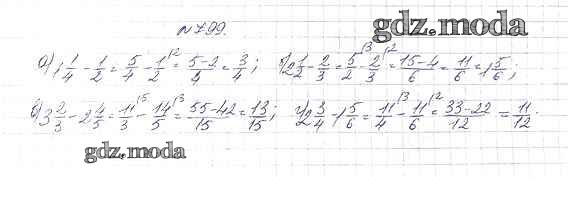 №799.
gdz.moda
а) 1 1/4 - 1/2 = 5/4 - 1/2 |2 = 5-2/4 = 3/4; в) 2 1/2 - 2/3 = 5/2 |3 - 2/3 |2 = 15-4/6 = 11/6 = 1 5/6;
б) 3 2/3 - 2 4/5 = 11/3 |5 - 14/5 |3 = 55-42/15 = 13/15; г) 2 3/4 - 1 5/6 = 11/4 |3 - 11/6 |2 = 33-22/12 = 11/12.
gdz.moda